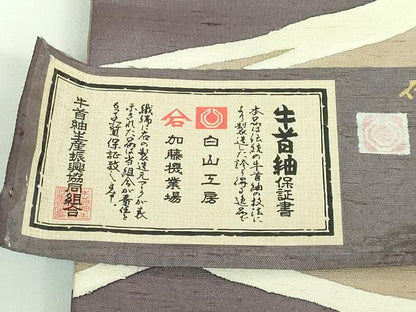 牛首紬保証書
本品は伝統の牛首紬の技法に
より製造した誇り得る逸品で
白山工房
加藤機業場
織端に右の製造元マークが表
示された品は当組合が責任を
もって品質保証致します
牛首紬生産振興協同組合